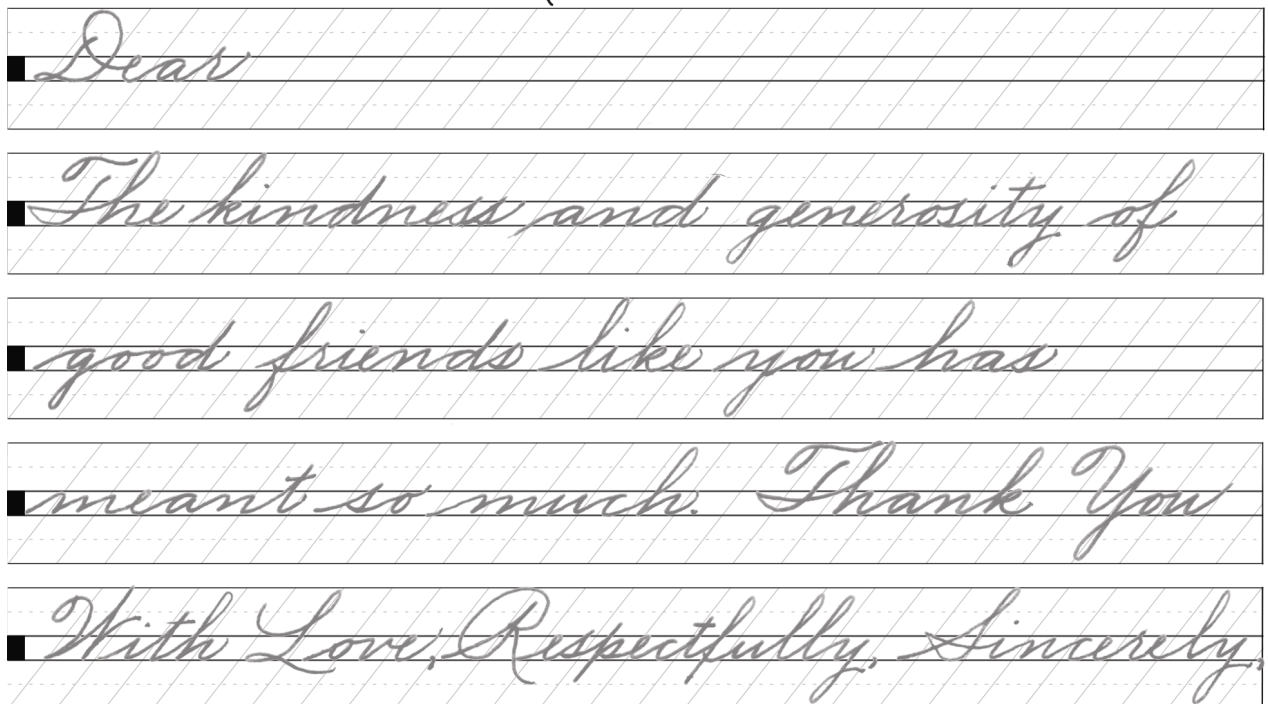 Dear
The kindness and generosity of
good friends like you has
meant so much. Thank You
With Love, Respectfully, Sincerely,